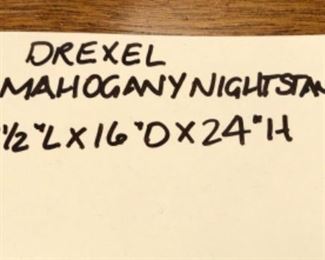 DREXEL
MAHOGANY NIGHTSTAN
1/2"L X 16"D X 24"H